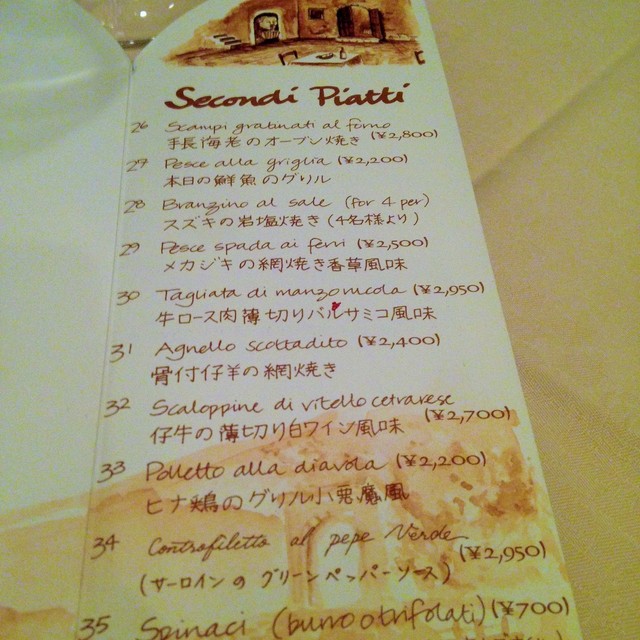 Secondi Piatti
26 Scampi gratinati al forno
手長海老のオーブン焼き (¥2,800)
27 Pesce alla griglia (¥2,200)
本日の鮮魚のグリル
28 Branzino al sale (for 4 per)
スズキの岩塩焼き (4名様より)
29 Pesce spada ai ferri (¥2,500)
メカジキの網焼き香草風味
30 Tagliata di manzo rucola (¥2,950)
牛ロース肉薄切りバルサミコ風味
31 Agnello scottadito (¥2,400)
骨付仔羊の網焼き
32 Scaloppine di vitello cetrarese
仔牛の薄切り白ワイン風味 (¥2,700)
33 Polletto alla diavola (¥2,200)
ヒナ鶏のグリル小悪魔風
34 Controfiletto al pepe Verde
(サーロインのグリーンペッパーソース) (¥2,950)
35 Spinaci (burro o trifolati) (¥700)